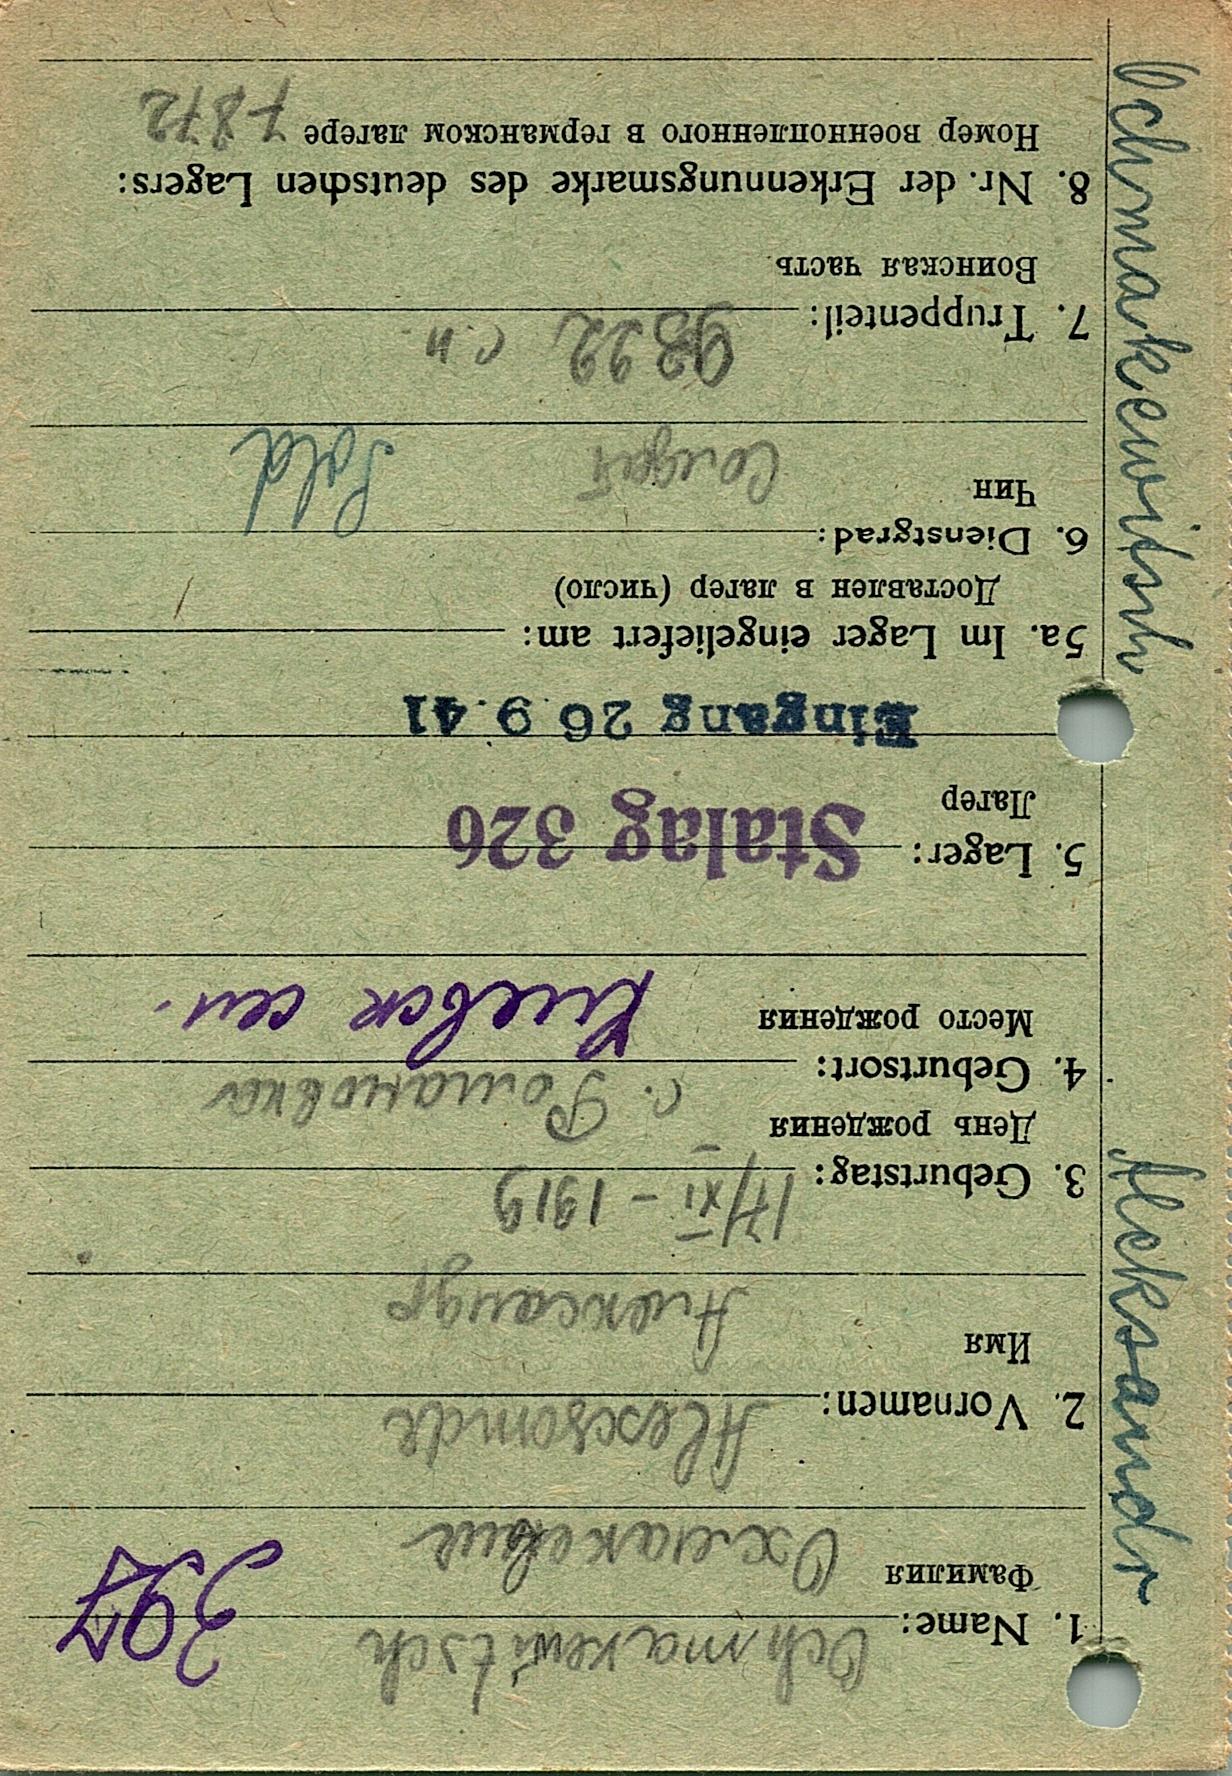 Ochmakewitsh Aleksandr
397
1. Name: Ochmakewitsch
Фамилия Охмакевич
2. Vornamen: Alexsande
Имя Александр
3. Geburtstag: 17/XI - 1919
День рождения
с. Романовка
4. Geburtsort: Киевск
Место рождения
5. Lager: Stalag 326
Лагер
Eingang 26.9.41
5a. Im Lager eingeliefert am:
Доставлен в лагер (число)
6. Dienstgrad: Sold
Чин Солдат
7. Truppenteil: 9322 с.п.
Воинская часть
8. Nr. der Erkennungsmarke des deutschen Lagers:
Номер военнопленного в германском лагере 7872